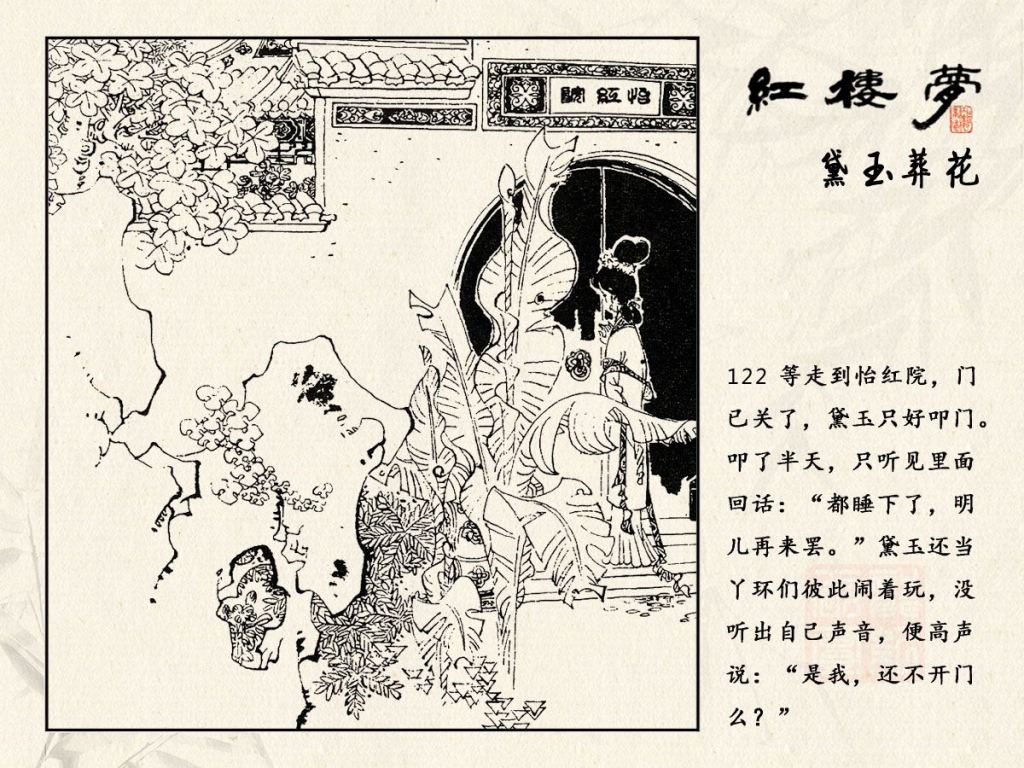 紅樓夢
黛玉葬花
院紅怡
122 等走到怡红院，门
已关了，黛玉只好叩门。
叩了半天，只听见里面
回话：“都睡下了，明
儿再来罢。”黛玉还当
丫环们彼此闹着玩，没
听出自己声音，便高声
说：“是我，还不开门
么？”